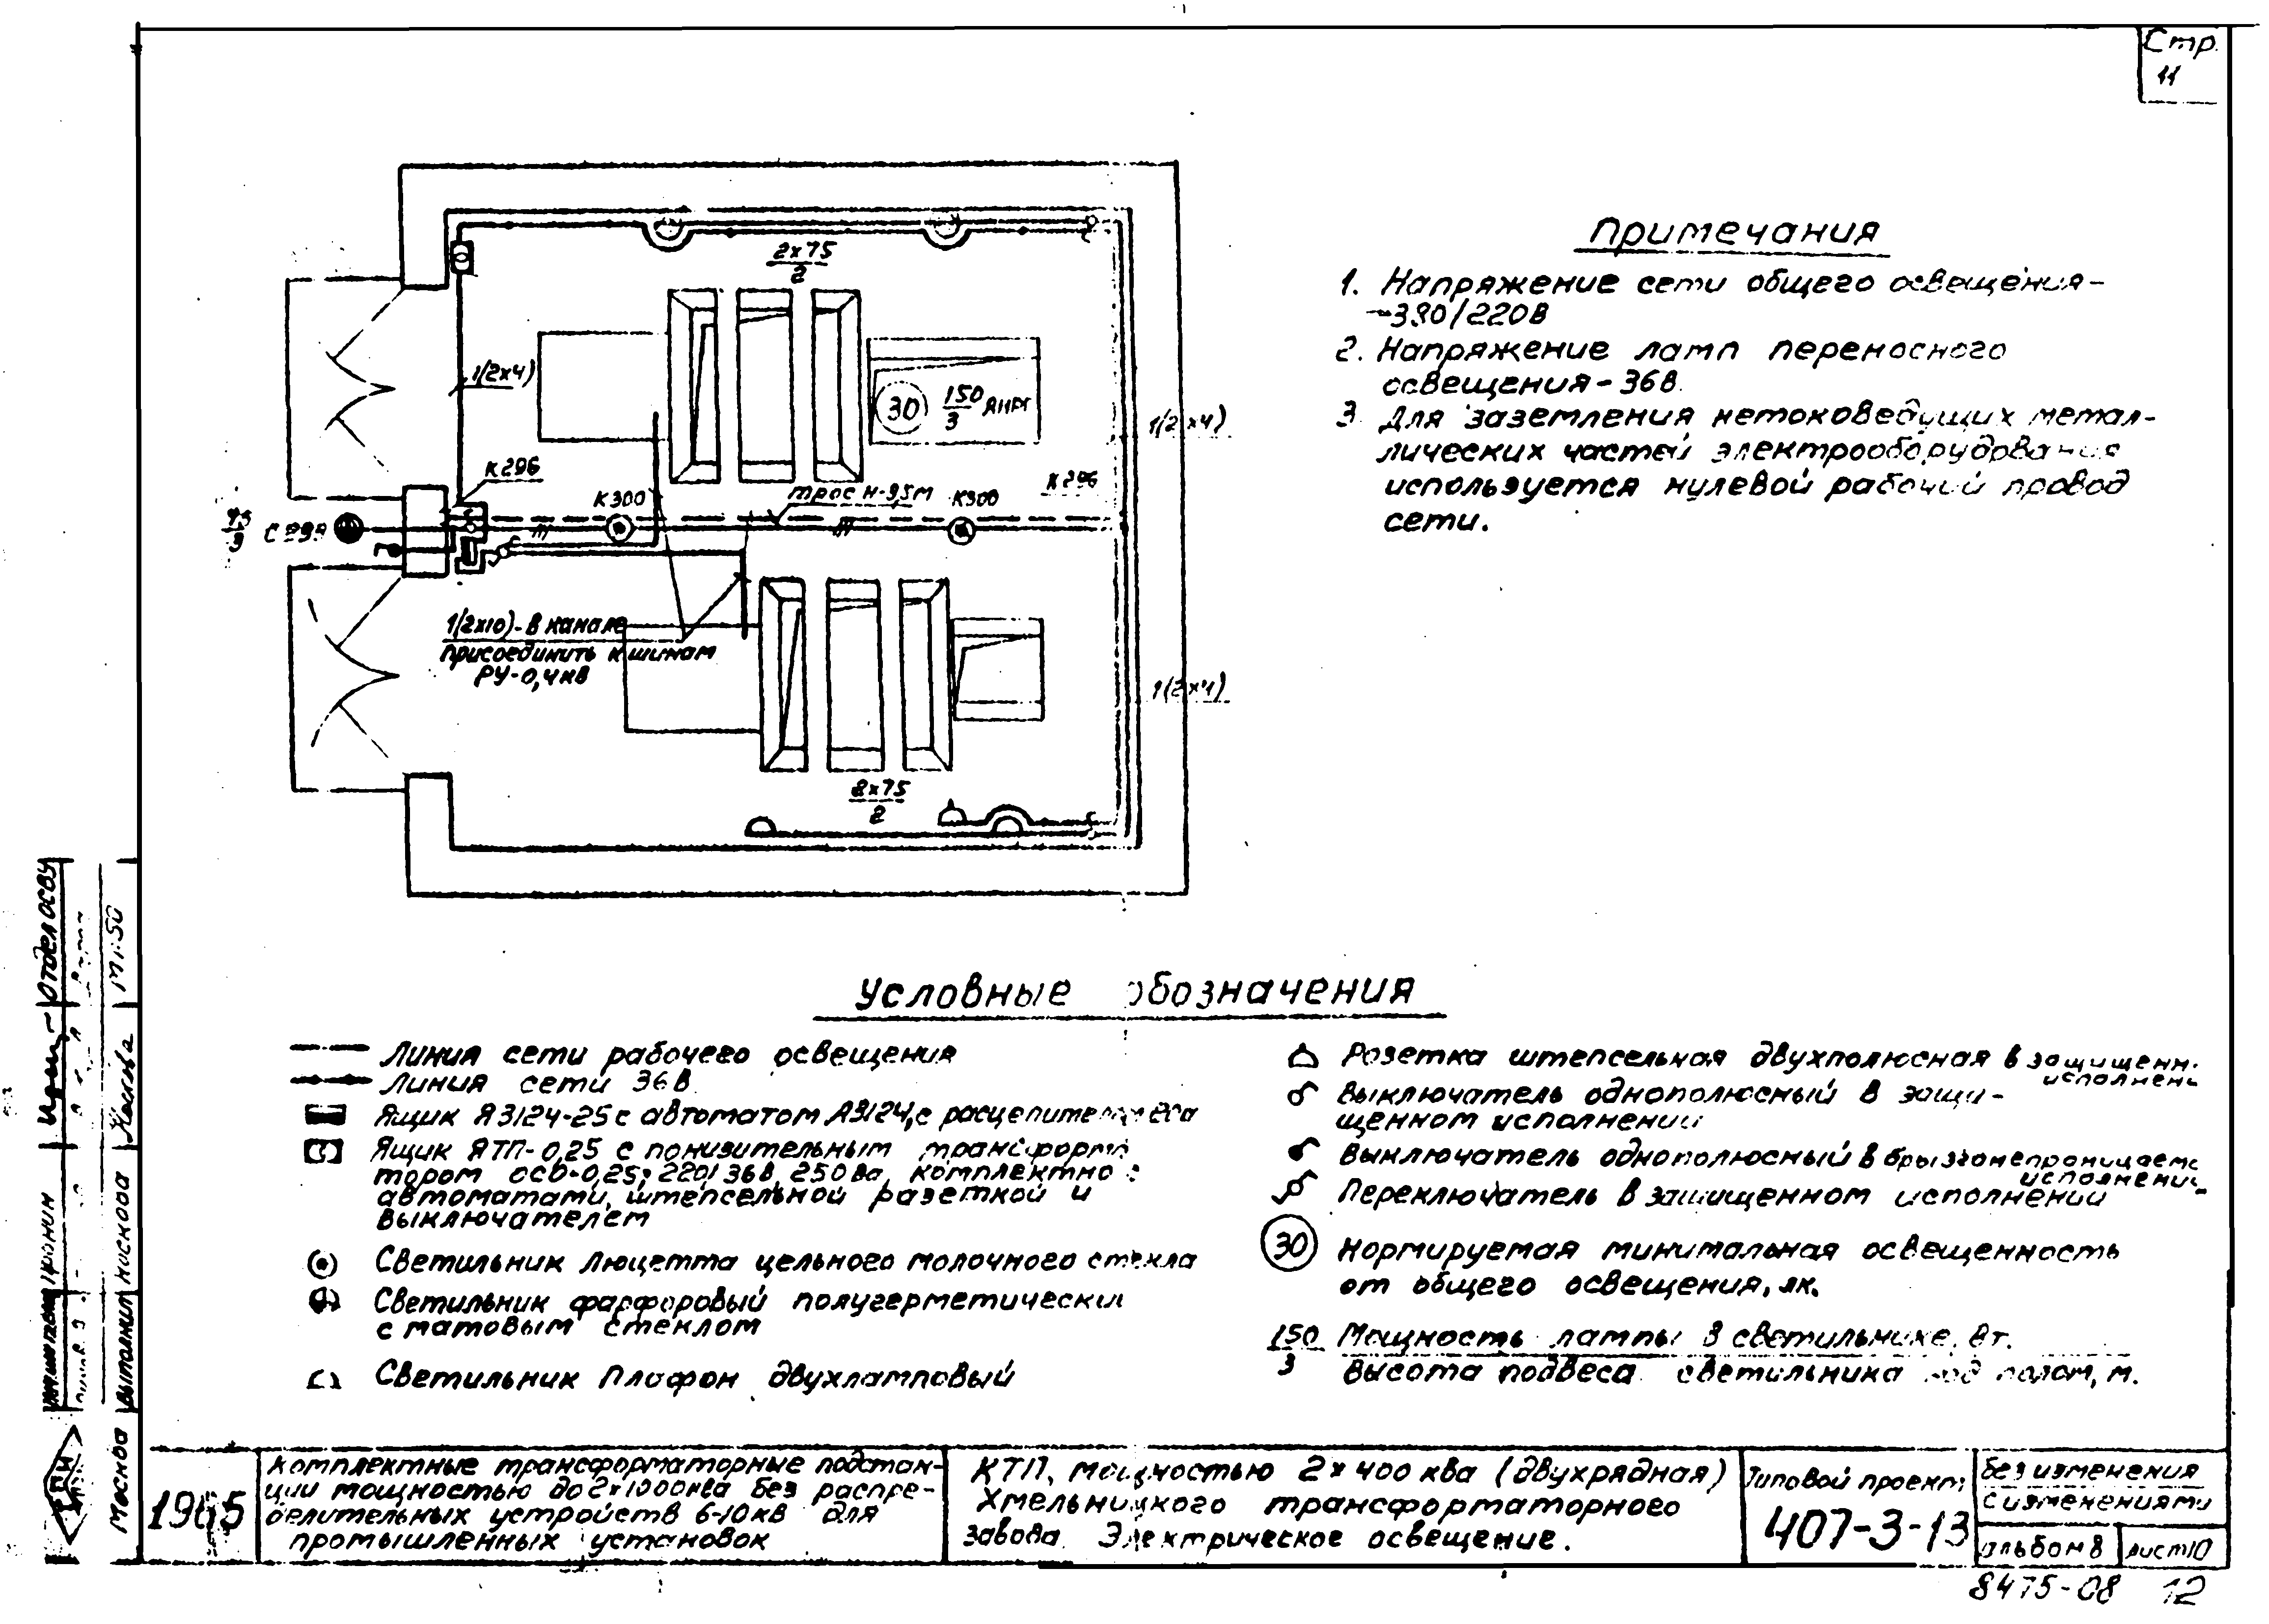 Стр.
11
2×75
2
1/(2×4)
30
150
3
1/(2×4)
К296
К300
трос Н-3,5м
К300
К296
1/(2×10)-в канале
присоединить к шинам
РУ-0,4кв
1/(2×4)
2×75
2
Примечания
1. Напряжение сети общего освещения-
~380/220В
2. Напряжение ламп переносного
освещения-36в.
3. Для заземления нетоковедущих метал-
лических частей электрооборудования
используется нулевой рабочий провод
сети.
Условные обозначения
Линия сети рабочего освещения
Линия сети 36в
Ящик Я3124-25 с автоматом А3124, с расцепителем
Ящик ЯТП-0,25 с понизительным трансформа
тором ОСО-0,25; 220/36в, 250ва, комплектно с
автоматами, штепсельной разеткой и
выключателем
Светильник Люцетта цельного молочного стекла
Светильник фарфоровый полугерметический
с матовым стеклом
Светильник Плафон двухламповый
Розетка штепсельная двухполюсная в защищенн.
исполнени
Выключатель однополюсный в защи-
щенном исполнении
Выключатель однополюсный в брызгонепроницаемо
исполнении
Переключатель в защищенном исполнении
30 Нормируемая минимальная освещенность
от общего освещения, лк.
150 Мощность лампы в светильнике, вт.
3 Высота подвеса светильника над полом, м.
Отдел ОСВУ
М 1:50
Кронин
Выполнил Кискова
Москва
1965
Комплектные трансформаторные подстан-
ции мощностью до 2×1000ква без распре-
делительных устройств 6-10кв для
промышленных установок
КТП, мощностью 2×400 ква (двухрядная)
Хмельницкого трансформаторного
завода. Электрическое освещение.
Типовой проект
407-3-13
Без изменения
С изменениями
Альбом 8
Лист 10
8475-08 12